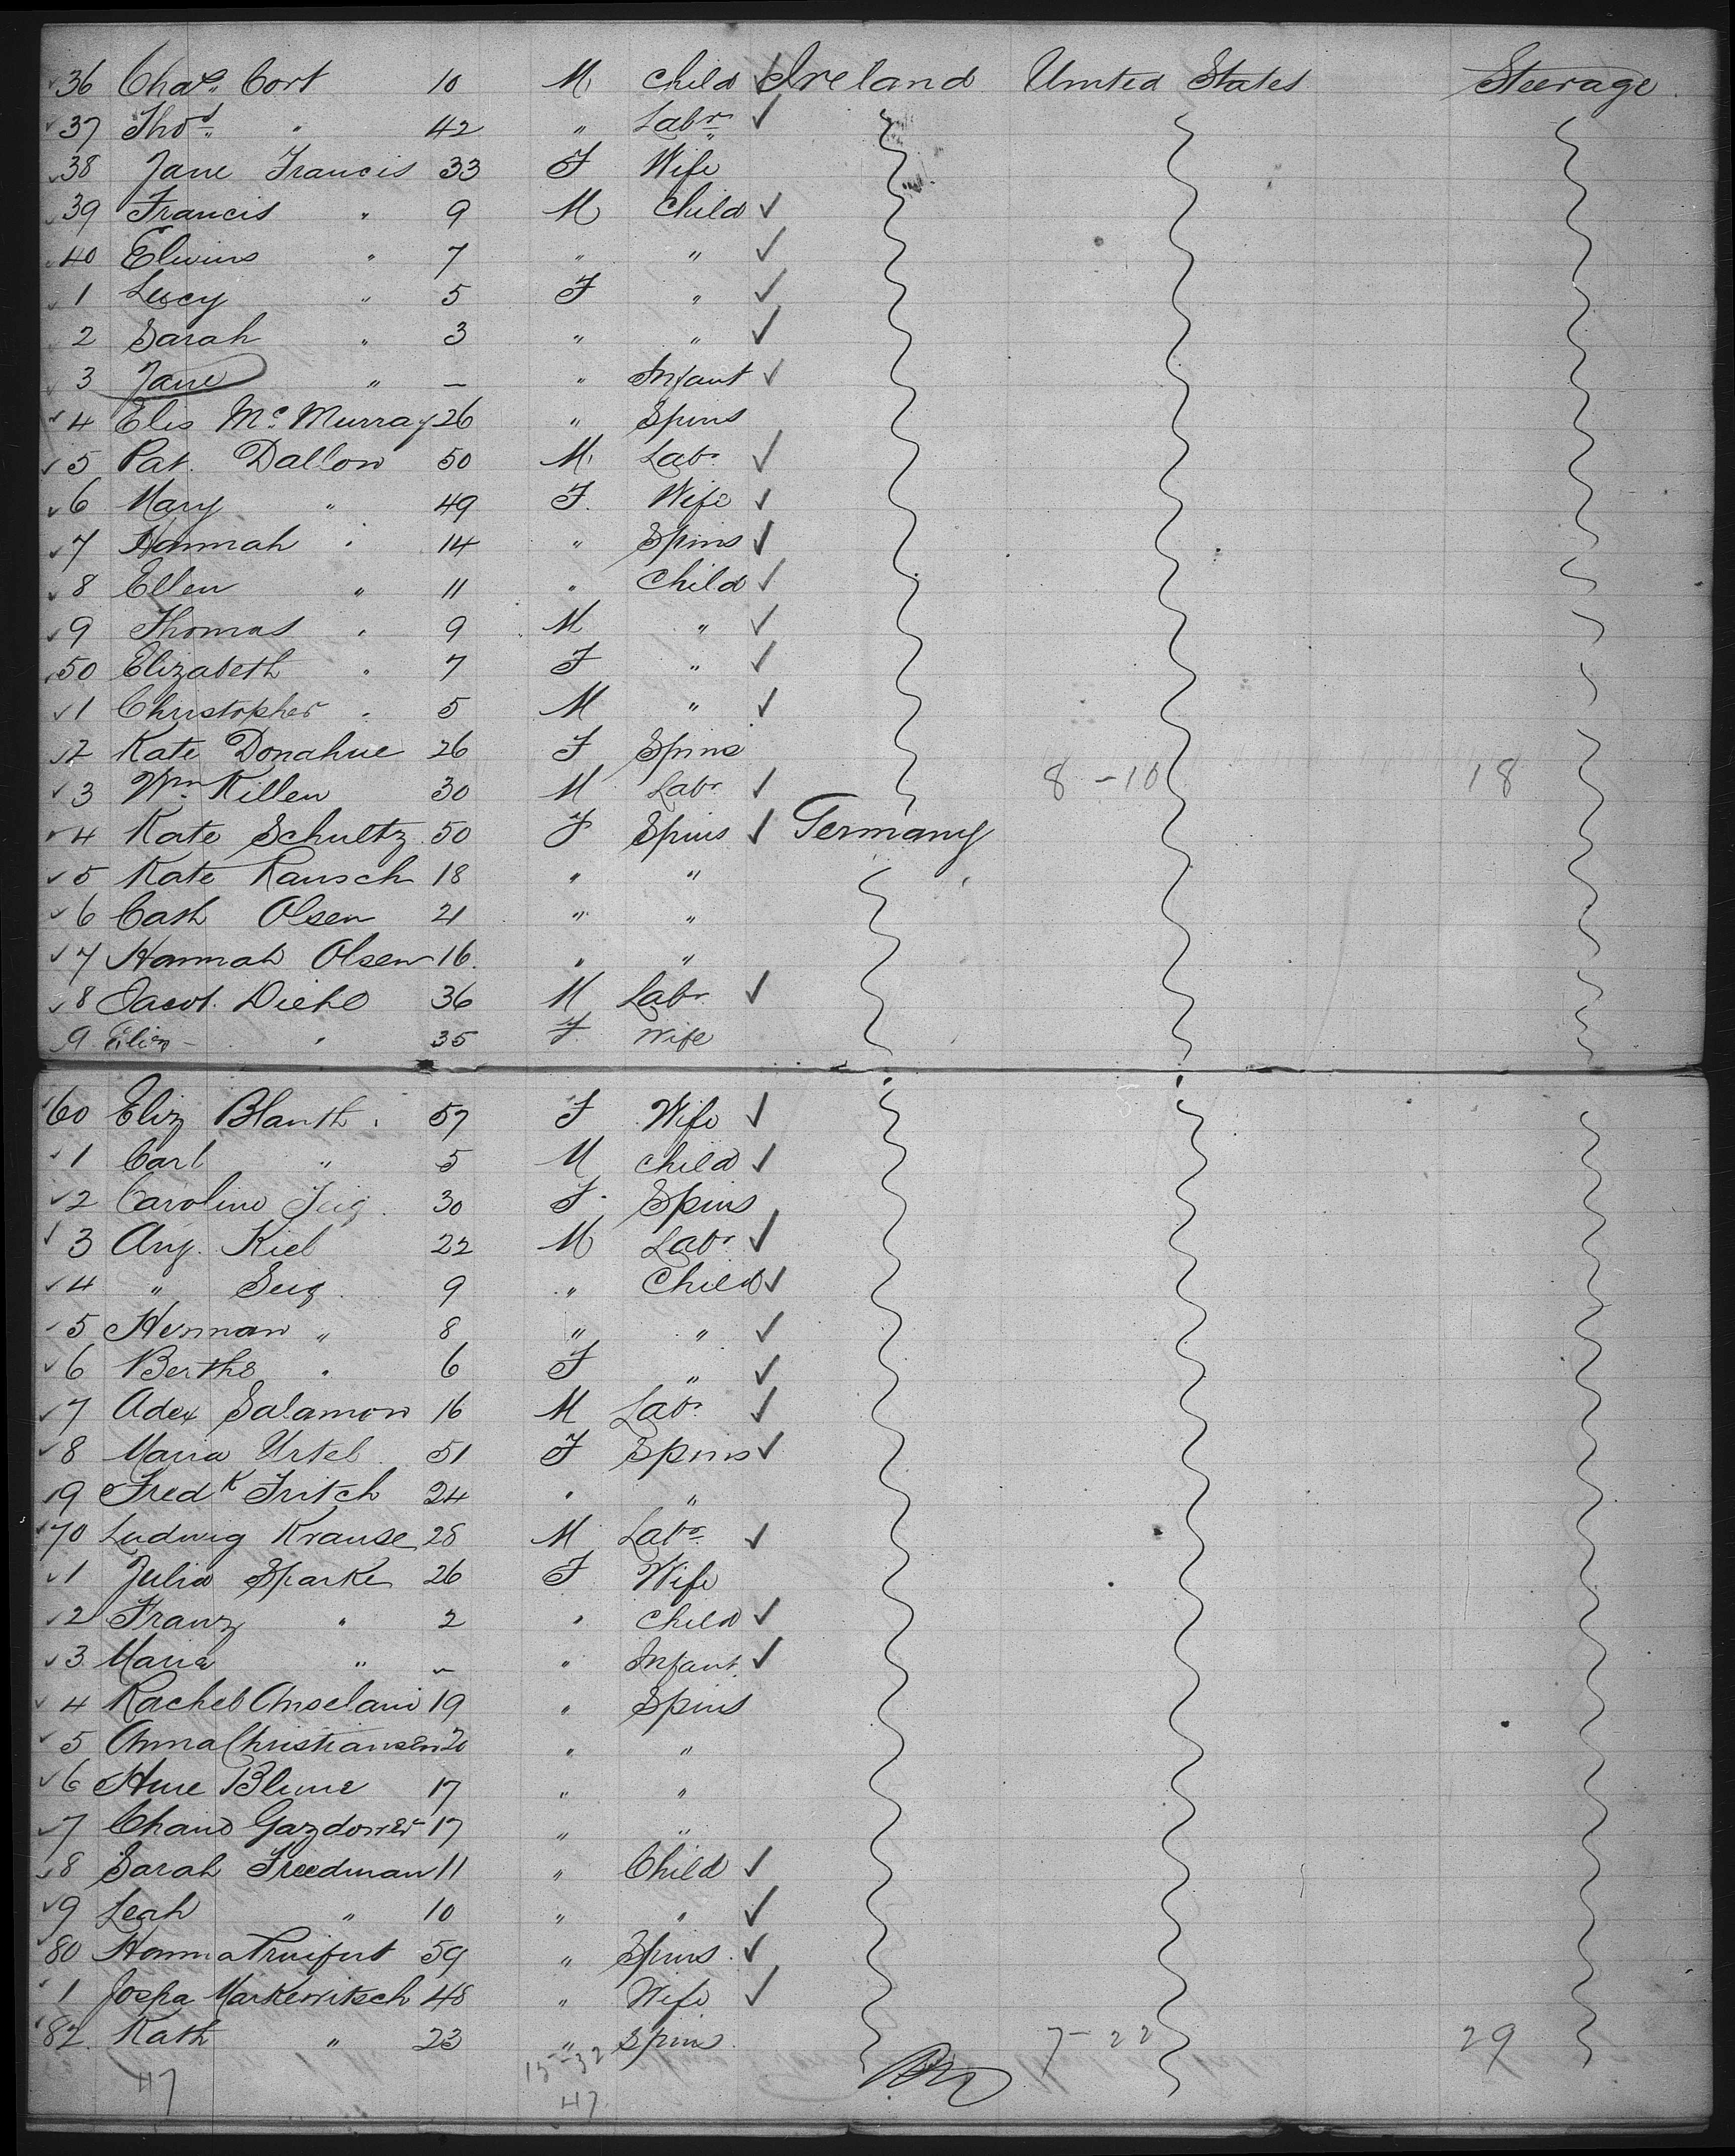 36 Chas. Cort 10 M Child Ireland United States Steerage
37 Thos. " 42 " Labr.
38 Jane Francis 33 F Wife
39 Francis " 9 M Child
40 " 7 " "
1 Lucy " 5 F "
2 Sarah " 3 " "
3 Jane " — " Infant
4 Elis McMurray 26 " Spins
5 Pat. Dallon 50 M Labr.
6 Mary " 49 F Wife
7 Hannah " 14 " Spins
8 Ellen " 11 " Child
9 Thomas " 9 M "
50 Elizabeth " 7 F "
1 Christopher " 5 M "
2 Kate Donahue 26 F Spins
3 Wm. Killen 30 M Labr. 8-10 18
4 Kate Schultz 50 F Spins Germany
5 Kate Rausch 18 " "
6 Cath Olsen 21 " "
7 Hannah Olsen 16 " "
8 Jacob. Diehl 36 M Labr.
9 " 35 F. Wife
60 Eliz Blanth " 57 F Wife
1 Carl " 5 M Child
2 Caroline 30 F. Spins
3 Aug. Kiel 22 M Labr.
4 " Seig 9 " Child
5 Herman " 8 " "
6 Bertha " 6 F "
7 Adex Salamon 16 M Labr.
8 Maria Urtel 51 F Spins
9 Fredk Fritch 24 " "
70 Ludwig Krause 28 M Labr.
1 Julia Sparke 26 F Wife
2 Franz " 2 " Child
3 Maria " — " Infant
4 Rachel 19 " Spins
5 Anna Christiansen 20 " "
6 Blume 17 " "
7 17 " "
8 Sarah Freedman 11 " Child
9 Leah " 10 " "
80 59 " Spins
1 Jospa Markewitsch 48 " Wife
82 Kath " 23 " Spins 7-22 29
47 15-32
47